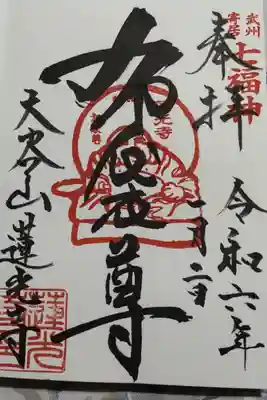 武州
寄居
七福神
奉拝
令和六年
一月二日
布袋尊
天谷山蓮光寺
蓮光